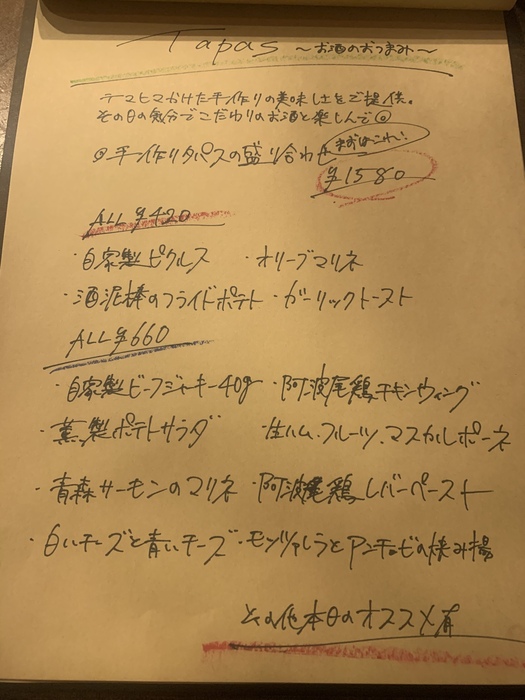 Tapas ～お酒のおつまみ～
テマヒマかけた手作りの美味しさをご提供。
その日の気分でこだわりのお酒と楽しんで◎
まずはこれ！
◎手作りタパスの盛り合わせ
¥1580
ALL ¥420
・自家製ピクルス ・オリーブマリネ
・酒泥棒のフライドポテト ・ガーリックトースト
ALL ¥660
・自家製ビーフジャーキー40g ・阿波尾鶏チキンウィング
・薫製ポテトサラダ 生ハム・フルーツ・マスカルポーネ
・青森サーモンのマリネ ・阿波尾鶏レバーペースト
・白いチーズと青いチーズ ・モッツァレラとアンチョビの挟み揚
その他本日のオススメ有